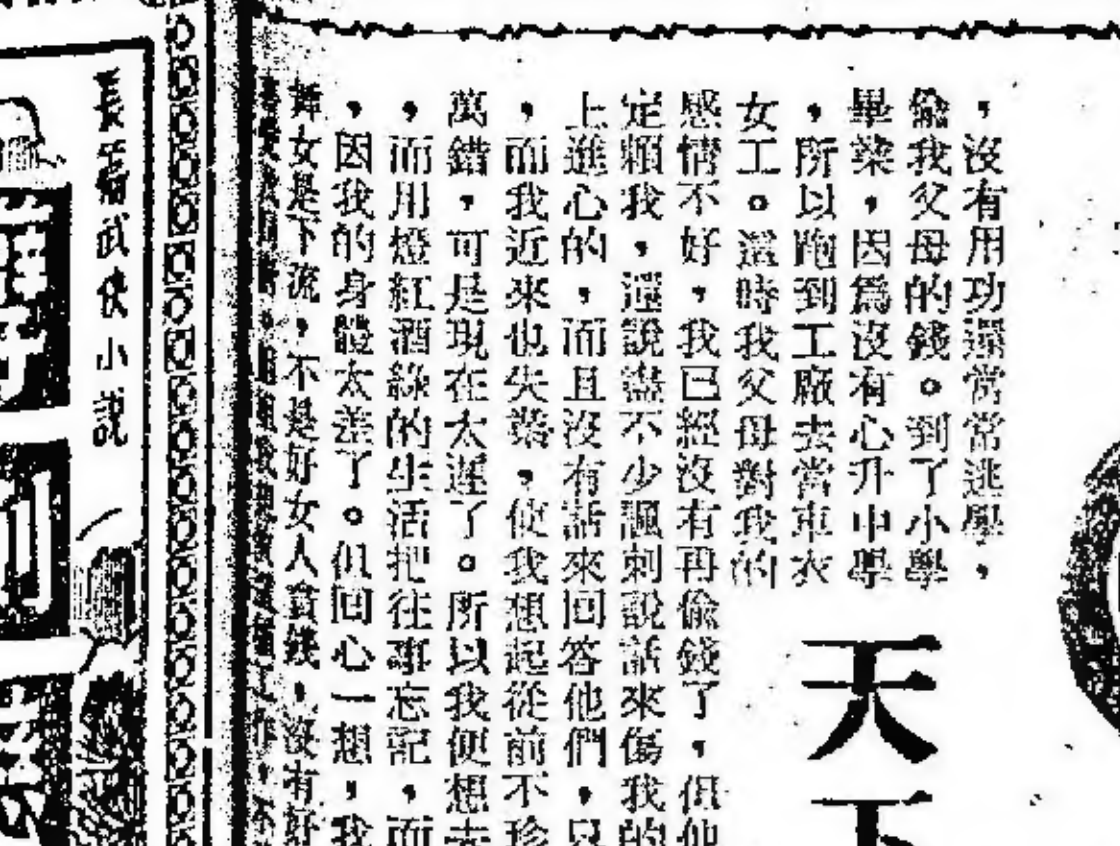 ，沒有用功還常常逃學，
偸我父母的錢。到了小學
畢業，因爲沒有心升中學
，所以跑到工廠去當車衣
女工。這時我父母對我的
感情不好，我已經沒有再偸錢了，但他
定賴我，還說盡不少諷刺說話來傷我的
上進心的，而且沒有話來回答他們，只
，而我近來也失業，使我想起從前不珍
萬錯，可是現在太遲了。所以我便想去
，而用燈紅酒綠的生活把往事忘記，而
，因我的身體太差了。但回心一想，我
舞女是下流，不是好女人賣錢，沒有好
天下
長篇武俠小說